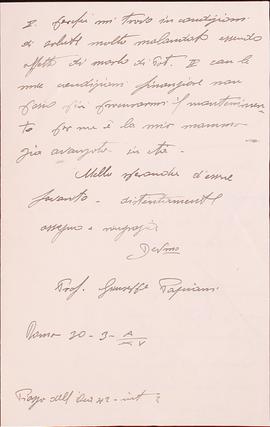 I. perché mi trovo in condizioni
di salute molto malandate essendo
affetto di morbo di Pot. II con le
mie condizioni finanziare non
posso più procurarmi il mantenimen-
to per me e la mia mamma
già avanzata in età.
Nella speranza d'essere
favorito - distintamente
ossequio e ringrazio
Devmo
Prof. Giuseppe
Roma 20-3-
Piazza dell' 42 - int 2